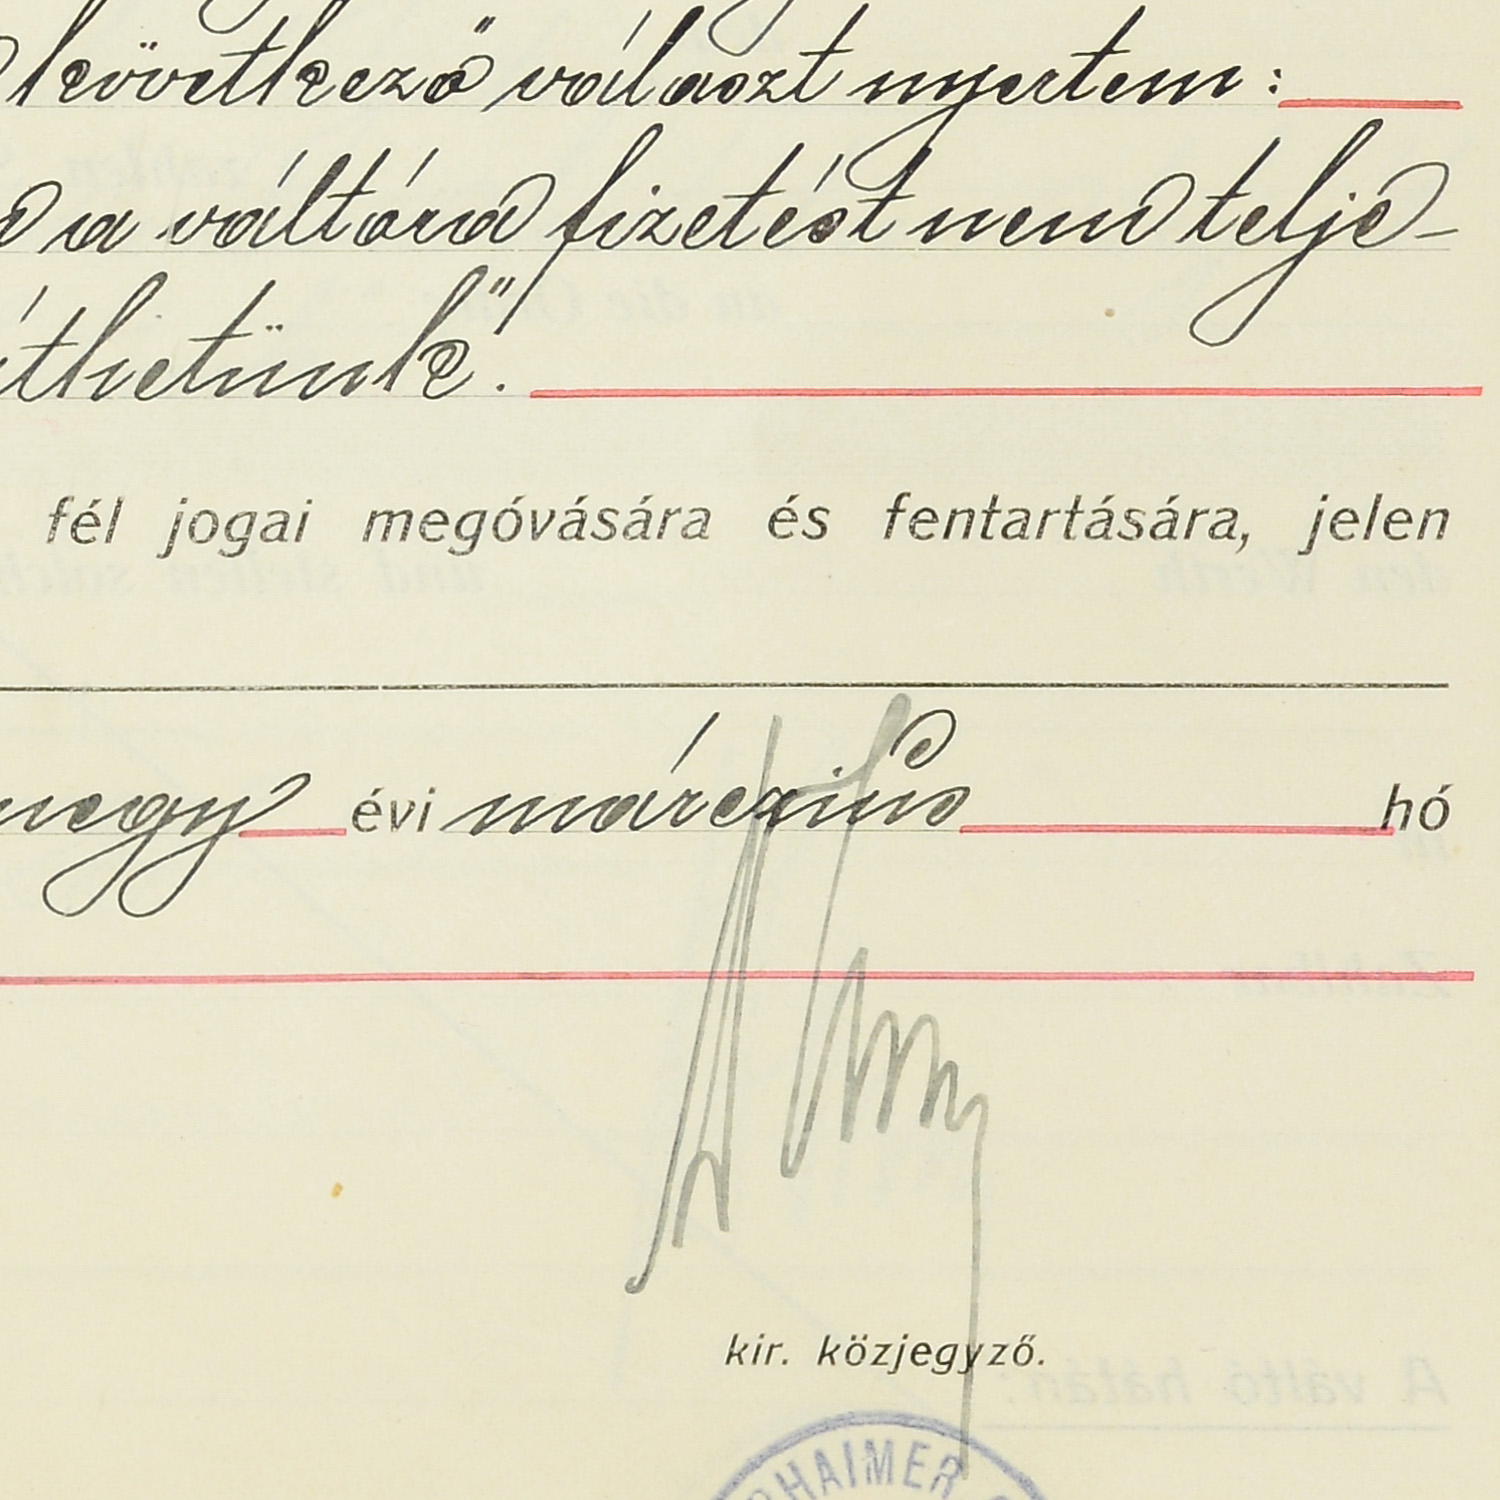 következő választ nyertem:
a váltóra fizetést nem telje-
íthetünk".
fél jogai megóvására és fentartására, jelen
négy évi márczius hó
kir. közjegyző.
HAIMER